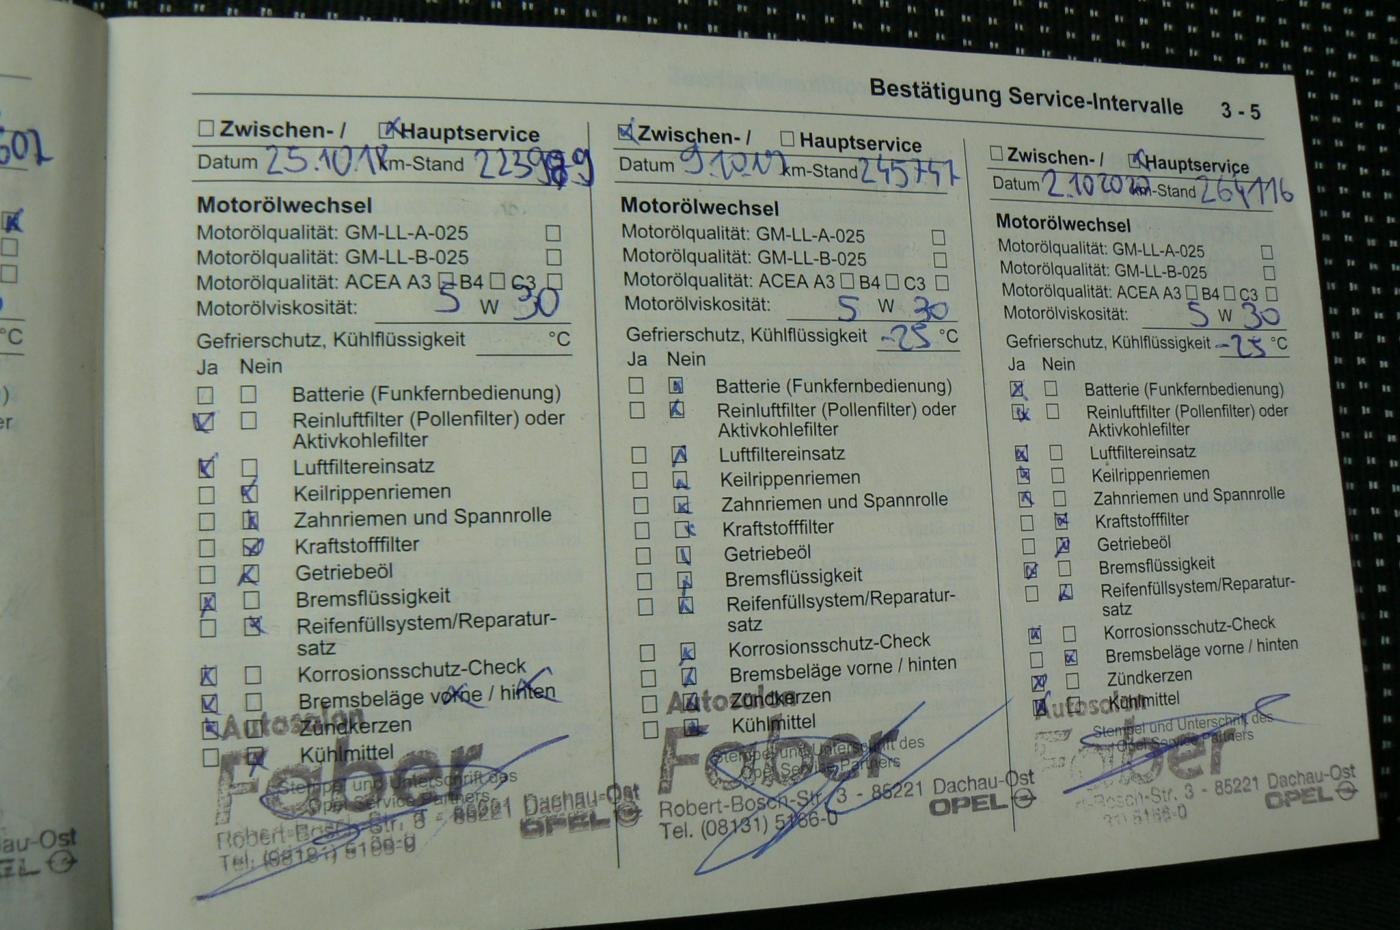 Bestätigung Service-Intervalle 3 - 5
607
°C
er
au-Ost
Zwischen- / Hauptservice
Datum 25.10.18 km-Stand
Motorölwechsel
Motorölqualität: GM-LL-A-025
GM-LL-B-025
Motorölqualität: ACEA A3 B4 C3
Motorölviskosität: 5 W 30
Gefrierschutz, Kühlflüssigkeit °C
Ja Nein
Batterie (Funkfernbedienung)
Reinluftfilter (Pollenfilter) oder
Aktivkohlefilter
Luftfiltereinsatz
Keilrippenriemen
Zahnriemen und Spannrolle
Kraftstofffilter
Getriebeöl
Bremsflüssigkeit
Reifenfüllsystem/Reparatur-
satz
Korrosionsschutz-Check
Bremsbeläge vorne / hinten
Zündkerzen
Kühlmittel
Autosalon
Faber
Stempel und Unterschrift des
Opel Service Partners
Robert-Bosch-Str. 3 - 85221 Dachau-Ost
Tel. (08131) 5166-0 OPEL
Zwischen- / Hauptservice
Datum 9.10.19 km-Stand 245747
Motorölwechsel
Motorölqualität: GM-LL-A-025
GM-LL-B-025
Motorölqualität: ACEA A3 B4 C3
Motorölviskosität: 5 W 30
Gefrierschutz, Kühlflüssigkeit -25 °C
Ja Nein
Batterie (Funkfernbedienung)
Reinluftfilter (Pollenfilter) oder
Aktivkohlefilter
Luftfiltereinsatz
Keilrippenriemen
Zahnriemen und Spannrolle
Kraftstofffilter
Getriebeöl
Bremsflüssigkeit
Reifenfüllsystem/Reparatur-
satz
Korrosionsschutz-Check
Bremsbeläge vorne / hinten
Zündkerzen
Kühlmittel
Autosalon
Faber
Stempel und Unterschrift des
Opel Service Partners
Robert-Bosch-Str. 3 - 85221 Dachau-Ost
Tel. (08131) 5166-0 OPEL
Zwischen- / Hauptservice
Datum 2.10.2020 km-Stand 264116
Motorölwechsel
Motorölqualität: GM-LL-A-025
GM-LL-B-025
Motorölqualität: ACEA A3 B4 C3
Motorölviskosität: 5 W 30
Gefrierschutz, Kühlflüssigkeit -25 °C
Ja Nein
Batterie (Funkfernbedienung)
Reinluftfilter (Pollenfilter) oder
Aktivkohlefilter
Luftfiltereinsatz
Keilrippenriemen
Zahnriemen und Spannrolle
Kraftstofffilter
Getriebeöl
Bremsflüssigkeit
Reifenfüllsystem/Reparatur-
satz
Korrosionsschutz-Check
Bremsbeläge vorne / hinten
Zündkerzen
Kühlmittel
Autosalon
Faber
Stempel und Unterschrift des
Opel Service Partners
t-Bosch-Str. 3 - 85221 Dachau-Ost
31) 5166-0 OPEL